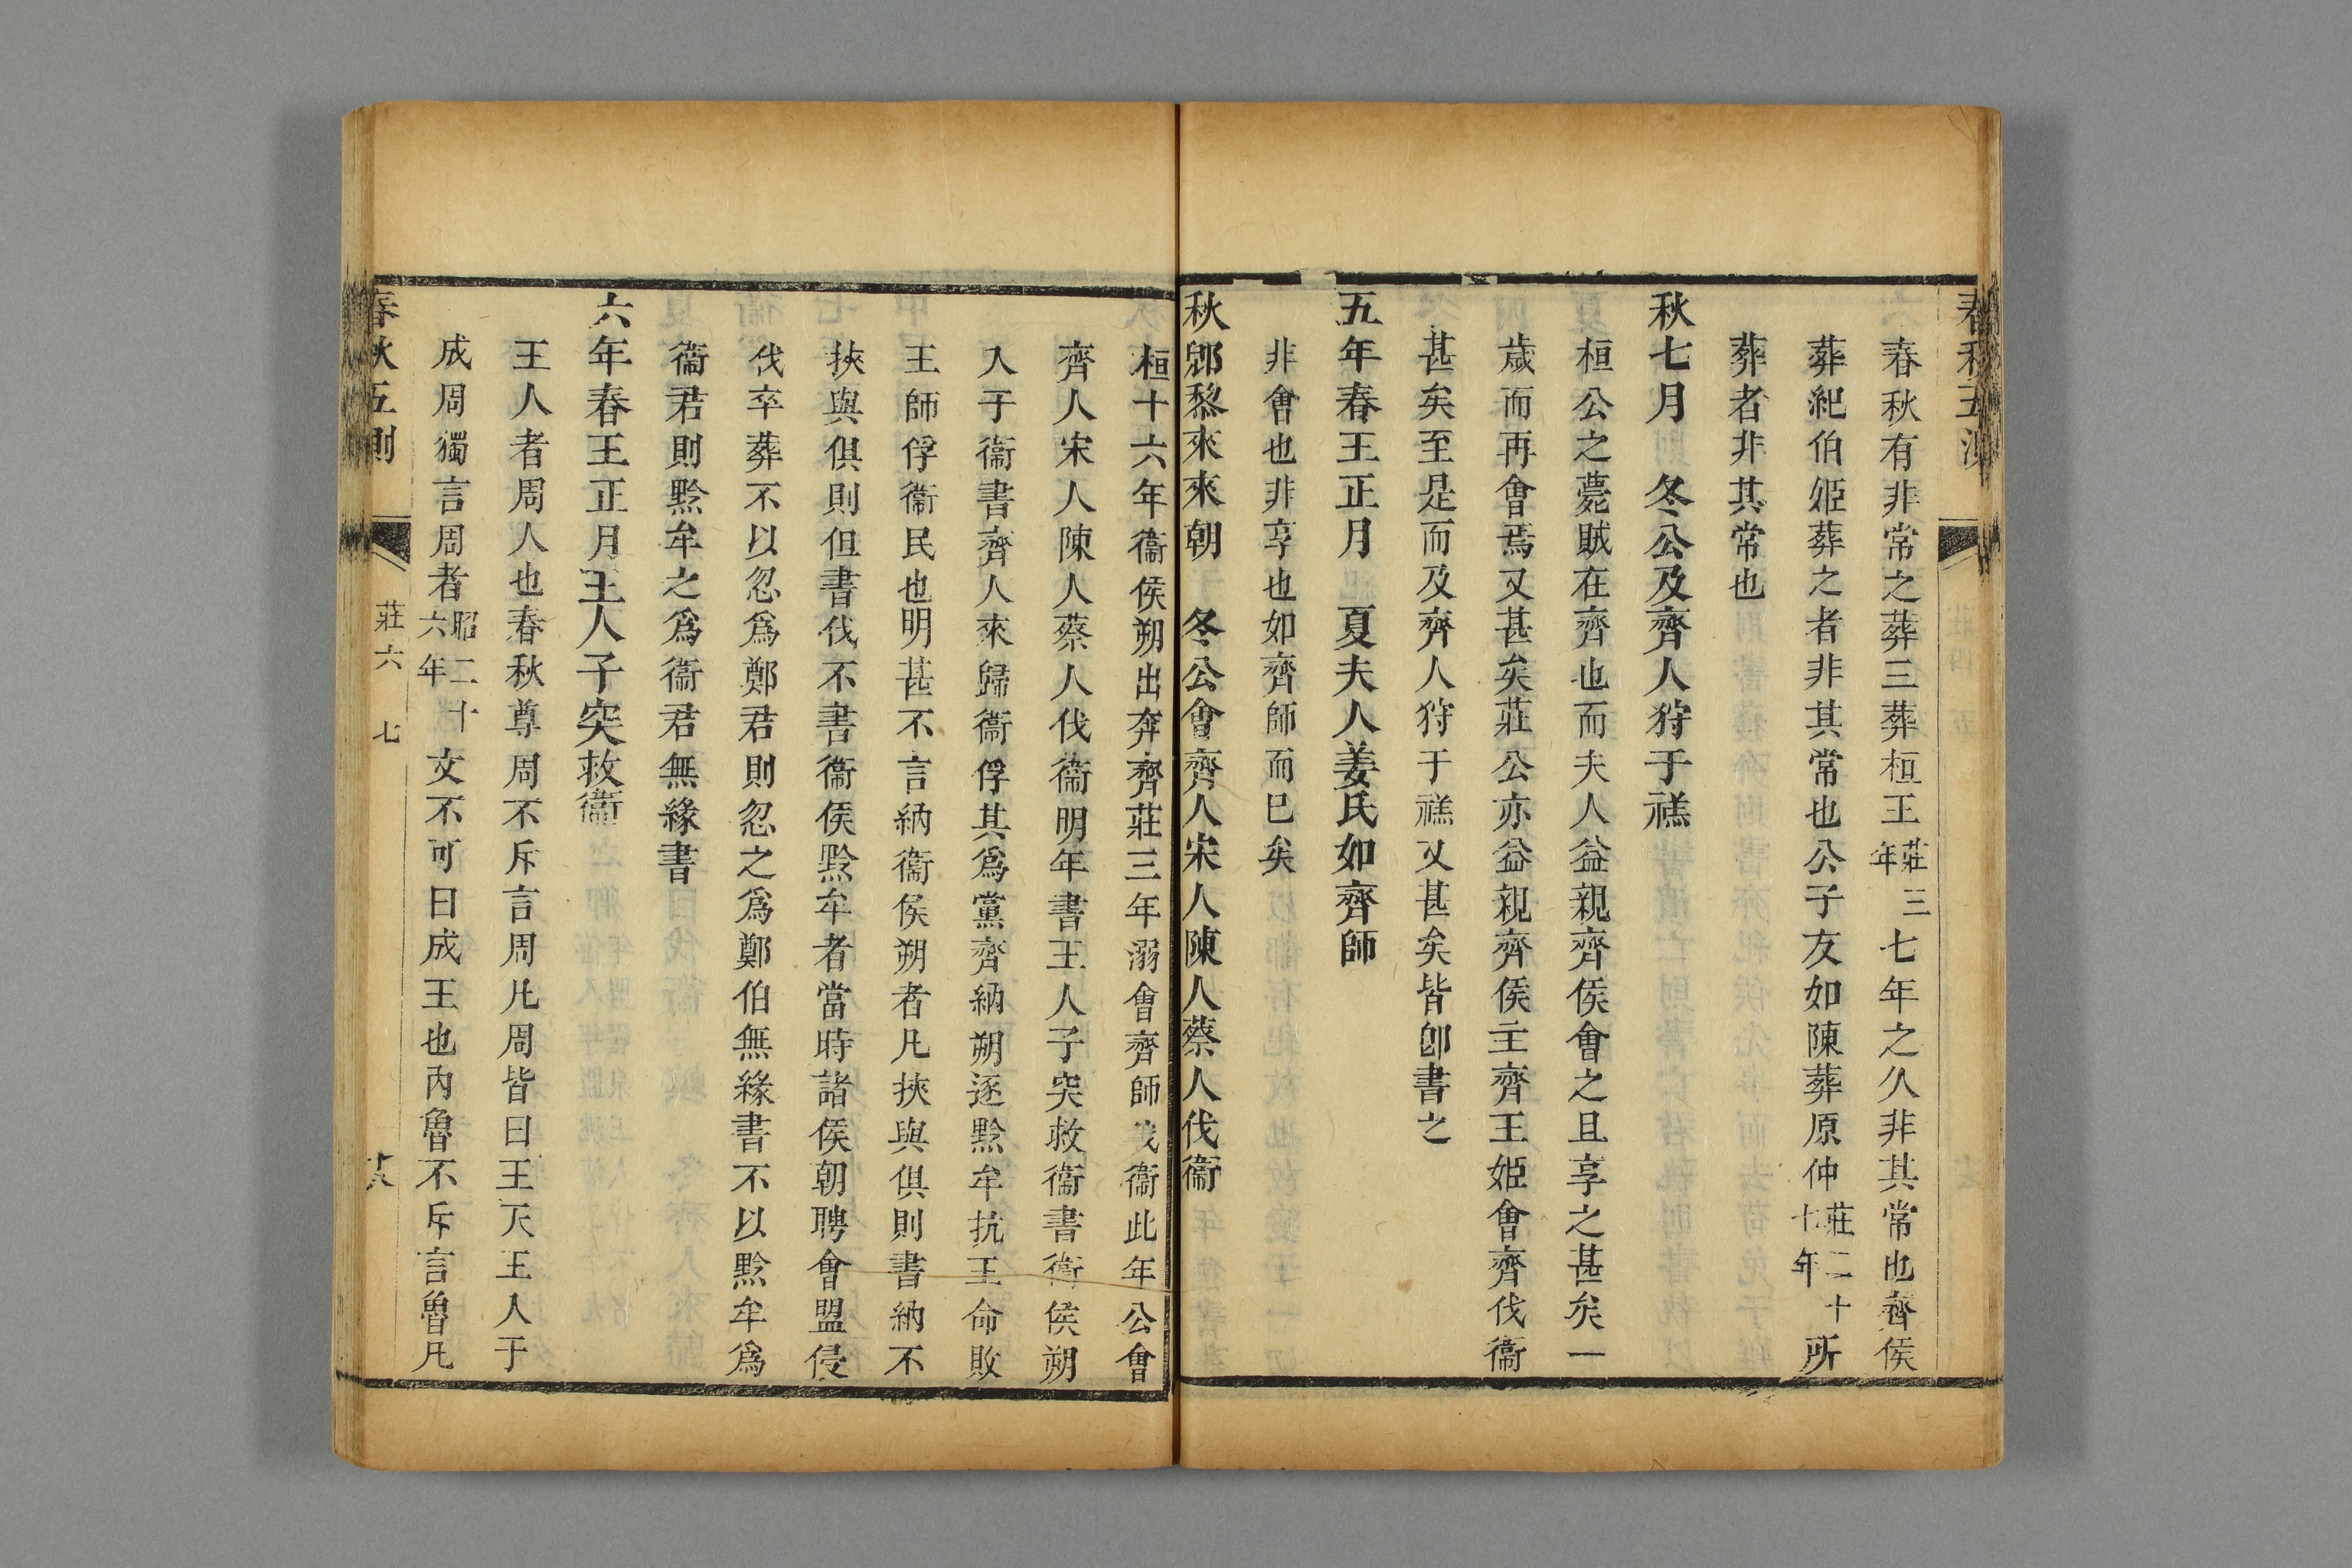 春秋五測
春秋有非常之葬三葬桓王莊三年七年之久非其常也齊侯
葬紀伯姬葬之者非其常也公子友如陳葬原仲莊二十七年所
葬者非其常也
秋七月　冬公及齊人狩于禚
桓公之薨賊在齊也而夫人益親齊侯會之且享之甚矣一
歲而再會焉又甚矣莊公亦益親齊侯主齊王姬會齊伐衞
甚矣至是而及齊人狩于禚又甚矣皆卽書之
五年春王正月　夏夫人姜氏如齊師
非會也非享也如齊師而已矣
秋郳黎來來朝　冬公會齊人宋人陳人蔡人伐衞
桓十六年衞侯朔出奔齊莊三年溺會齊師伐衞此年公會
齊人宋人陳人蔡人伐衞明年書王人子突救衞書衞侯朔
入于衞書齊人來歸衞俘其爲黨齊納朔逐黔牟抗王命敗
王師俘衞民也明甚不言納衞侯朔者凡挾與俱則書納不
挾與俱則但書伐不書衞侯黔牟者當時諸侯朝聘會盟侵
伐卒葬不以忽爲鄭君則忽之爲鄭伯無緣書不以黔牟爲
衞君則黔牟之爲衞君無緣書
六年春王正月王人子突救衞
王人者周人也春秋尊周不斥言周凡周皆曰王天王人于
成周獨言周者昭二十六年文不可曰成王也內魯不斥言魯凡
春秋五測
莊六　七